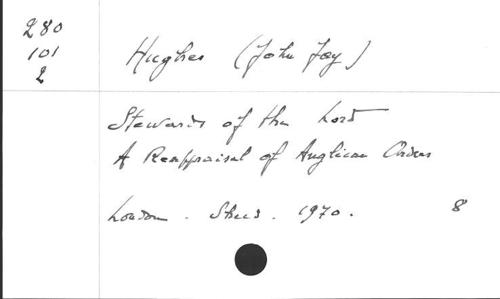 280
101
2
Hughes (John Jay)
Stewards of the Lord
A Reappraisal of Anglican Orders
London. Sheed. 1970. 8